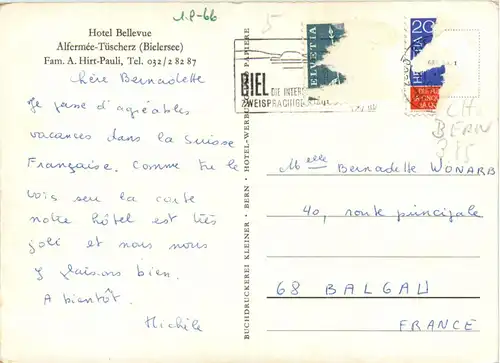 1-8-66
Hotel Bellevue
Alfermée-Tüscherz (Bielersee)
Fam. A. Hirt-Pauli, Tel. 032/2 82 87
Chère Bernadette
Je passe d'agréables
vacances dans la Suisse
Française. Comme tu le
vois sur la carte
notre hôtel est très
joli et nous nous
y plaisons bien.
A bientôt.
Michèle
BUCHDRUCKEREI KLEINER - BERN - HOTEL-WERBU PAPIERE
5
BIEL DIE INTERS
ZWEISPRACHIG
HELVETIA
20
CH.
BERN
Melle Bernadette WONARB
40, route principale
68 BALGAU
FRANCE